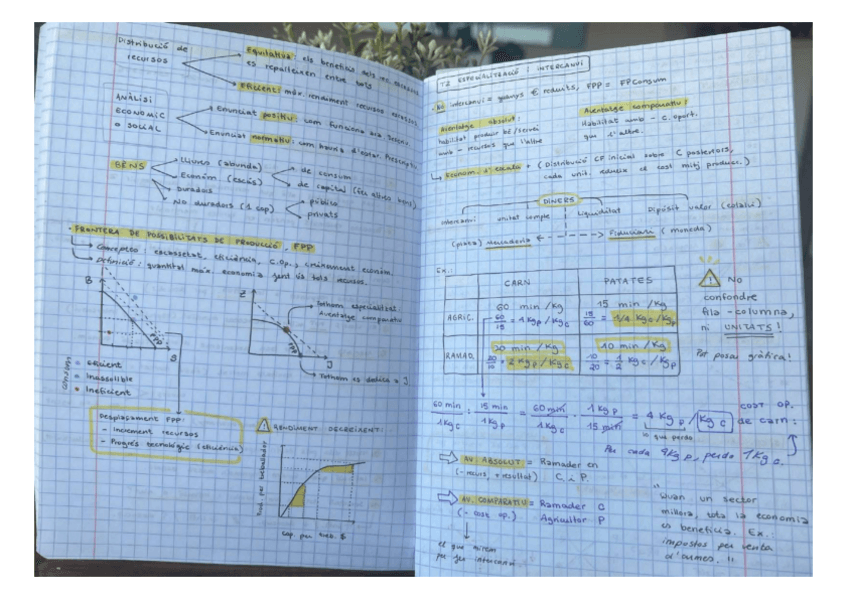 Distribució de
recursos
Equitativa: els beneficis dels rec. escassos
es reparteixen entre tots
Eficient: màx. rendiment recursos escassos
ANÀLISI
ECONÒMIC
O SOCIAL
Enunciat positiu: com funciona
Enunciat normatiu: com hauria d'estar.
BÉNS
Lliures (abunda)
Econòm (escàs)
de consum
de capital (fer altres béns)
Durados
No durados (1 cop)
públics
privats
· FRONTERA DE POSSIBILITATS DE PRODUCCIÓ, FPP
Conceptes: escassetat, eficiència, C.Op., creixement econòm.
Definició: quantitat màx. economia fent ús tots recursos.
B
S
FPP
eficient
Inassolible
Ineficient
Z
J
FPP
Tothom especialitzat.
Avantatge comparatiu
Tothom es dedica a J.
Desplaçament FPP:
- Increment recursos
- Progrés tecnològic (eficiència)
! RENDIMENT DECREIXENT:
Prod. per treballador
cap. per treb. $
T2 ESPECIALITZACIÓ I INTERCANVI
· No intercanvi = guanys € reduïts, FPP = FPConsum
Avantatge absolut:
habilitat produir bé/servei
amb - recursos que l'altre
Avantatge comparatiu:
Habilitat amb - c. oport.
que l'altre.
Econom. d'escala + (Distribució CF inicial sobre C posteriors,
cada unit. redueix el cost mitj produc.)
DINERS
Intercanvi
unitat compte
Liquiditat
Dipòsit valor (estalvi)
(plata) Mercaderia
Fiduciari (moneda)
Ex.:
CARN
PATATES
AGRIC.
60 min/Kg
60/15 = 4 Kgp/Kgc
15 min/Kg
15/60 = 1/4 Kgc/Kgp
RAMAD.
20 min/Kg
20/10 = 2 Kgp/Kgc
10 min/Kg
10/20 = 1/2 Kgc/Kgp
! No
confondre
fila-columna,
ni UNITATS!
Pot posar gràfica!
60 min/1 Kgc : 15 min/1 Kgp = 60 min/1 Kgc · 1 Kgp/15 min = 4 Kgp/Kgc
cost op.
de carn:
lo que perdo
Per cada 4Kgp, perdo 1Kgc.
AV. ABSOLUT = Ramader en
(- recurs, + resultat) C i P.
AV. COMPARATIU = Ramader C
(- cost op.) Agricultor P
el que mirem
per fer intercanvi
"Quan un sector
millora, tota la economia
es beneficia. Ex.:
impostos per venta
d'armes."